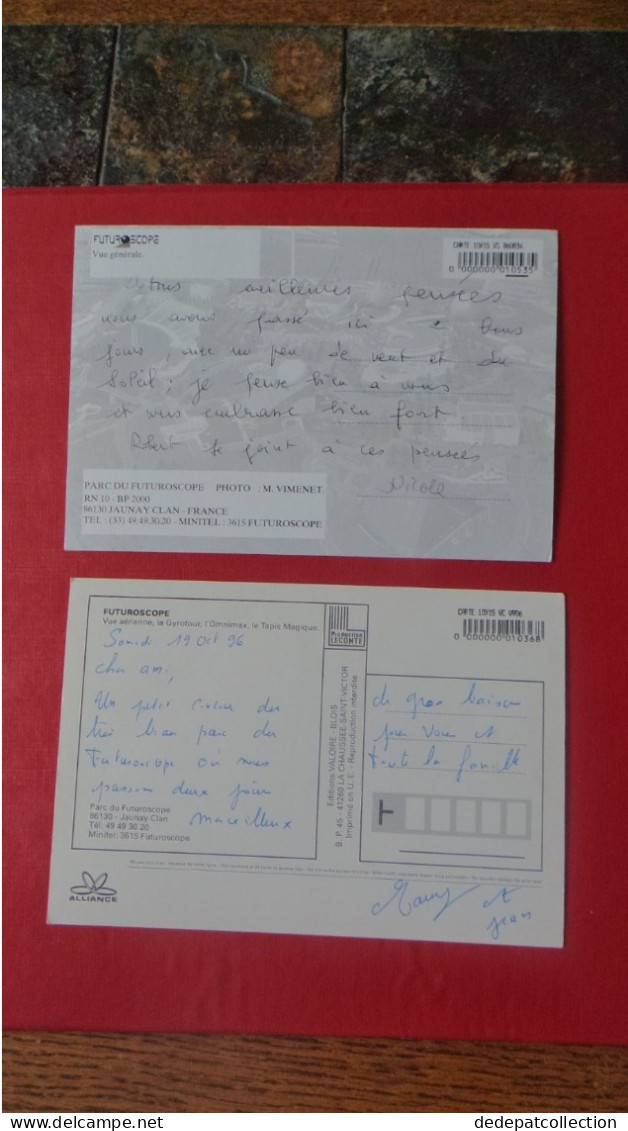 FUTUROSCOPE
Vue générale.
CARTE 10X15 VC
0 000000 010535
meilleures pensées
nous avons passé ici 2 bons
jours, avec un peu de vent et du
Soleil ; je pense bien à vous
et vous embrasse bien fort
Robert se joint à ces pensées
Nicole
PARC DU FUTUROSCOPE PHOTO : M. VIMENET
RN 10 - BP 2000
86130 JAUNAY CLAN - FRANCE
TEL : (33) 49.49.30.20 - MINITEL : 3615 FUTUROSCOPE
FUTUROSCOPE
Vue aérienne, la Gyrotour, l'Omnimax, le Tapis Magique.
Samedi 19 Oct 96
Cher ami,
Un petit du
très beau parc du
Futuroscope où nous
passons deux jours
merveilleux
Parc du Futuroscope
86130 - Jaunay Clan
Tél. 49 49 30 20
Minitel: 3615 Futuroscope
ALLIANCE
Production
LECONTE
Editions VALOIRE - BLOIS
B. P. 45 - 41260 LA CHAUSSEE-SAINT-VICTOR
Imprimé en U. E. - Reproduction interdite
CARTE 10X15 VC
0 000000 010368
de gros baisers
pour vous et
toute la famille
et
Jean
www.delcampe.net
dedepatcollection